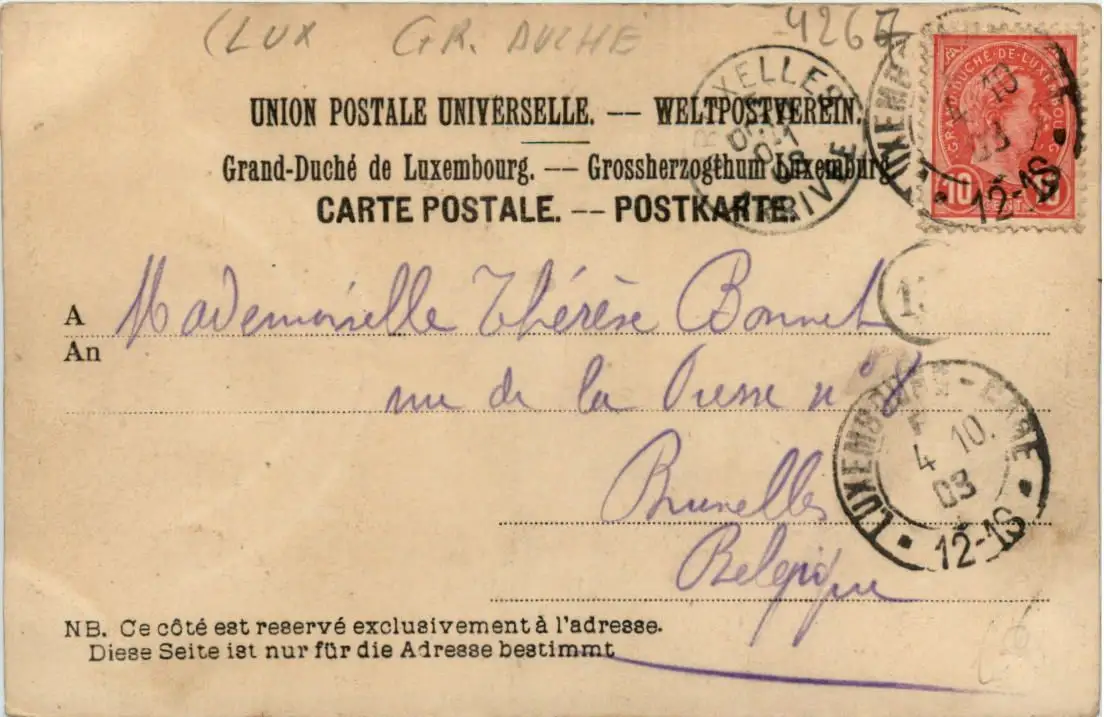 (LUX GR. DUCHE 4267
UNION POSTALE UNIVERSELLE. — WELTPOSTVEREIN.
Grand-Duché de Luxembourg. — Grossherzogthum Luxemburg
CARTE POSTALE. — POSTKARTE.
BRUXELLES
ARRIVEE
GRAND-DUCHÉ-DE-LUXEMBOURG
10 CENT 10
4 10
03
12-1S
A Mademoiselle Thérèse Bonnet
An
rue de la Presse n° 8
Bruxelles
Belgique
LUXEMBOURG-GARE
4 10.
03
12-1S
NB. Ce côté est reservé exclusivement à l'adresse.
Diese Seite ist nur für die Adresse bestimmt